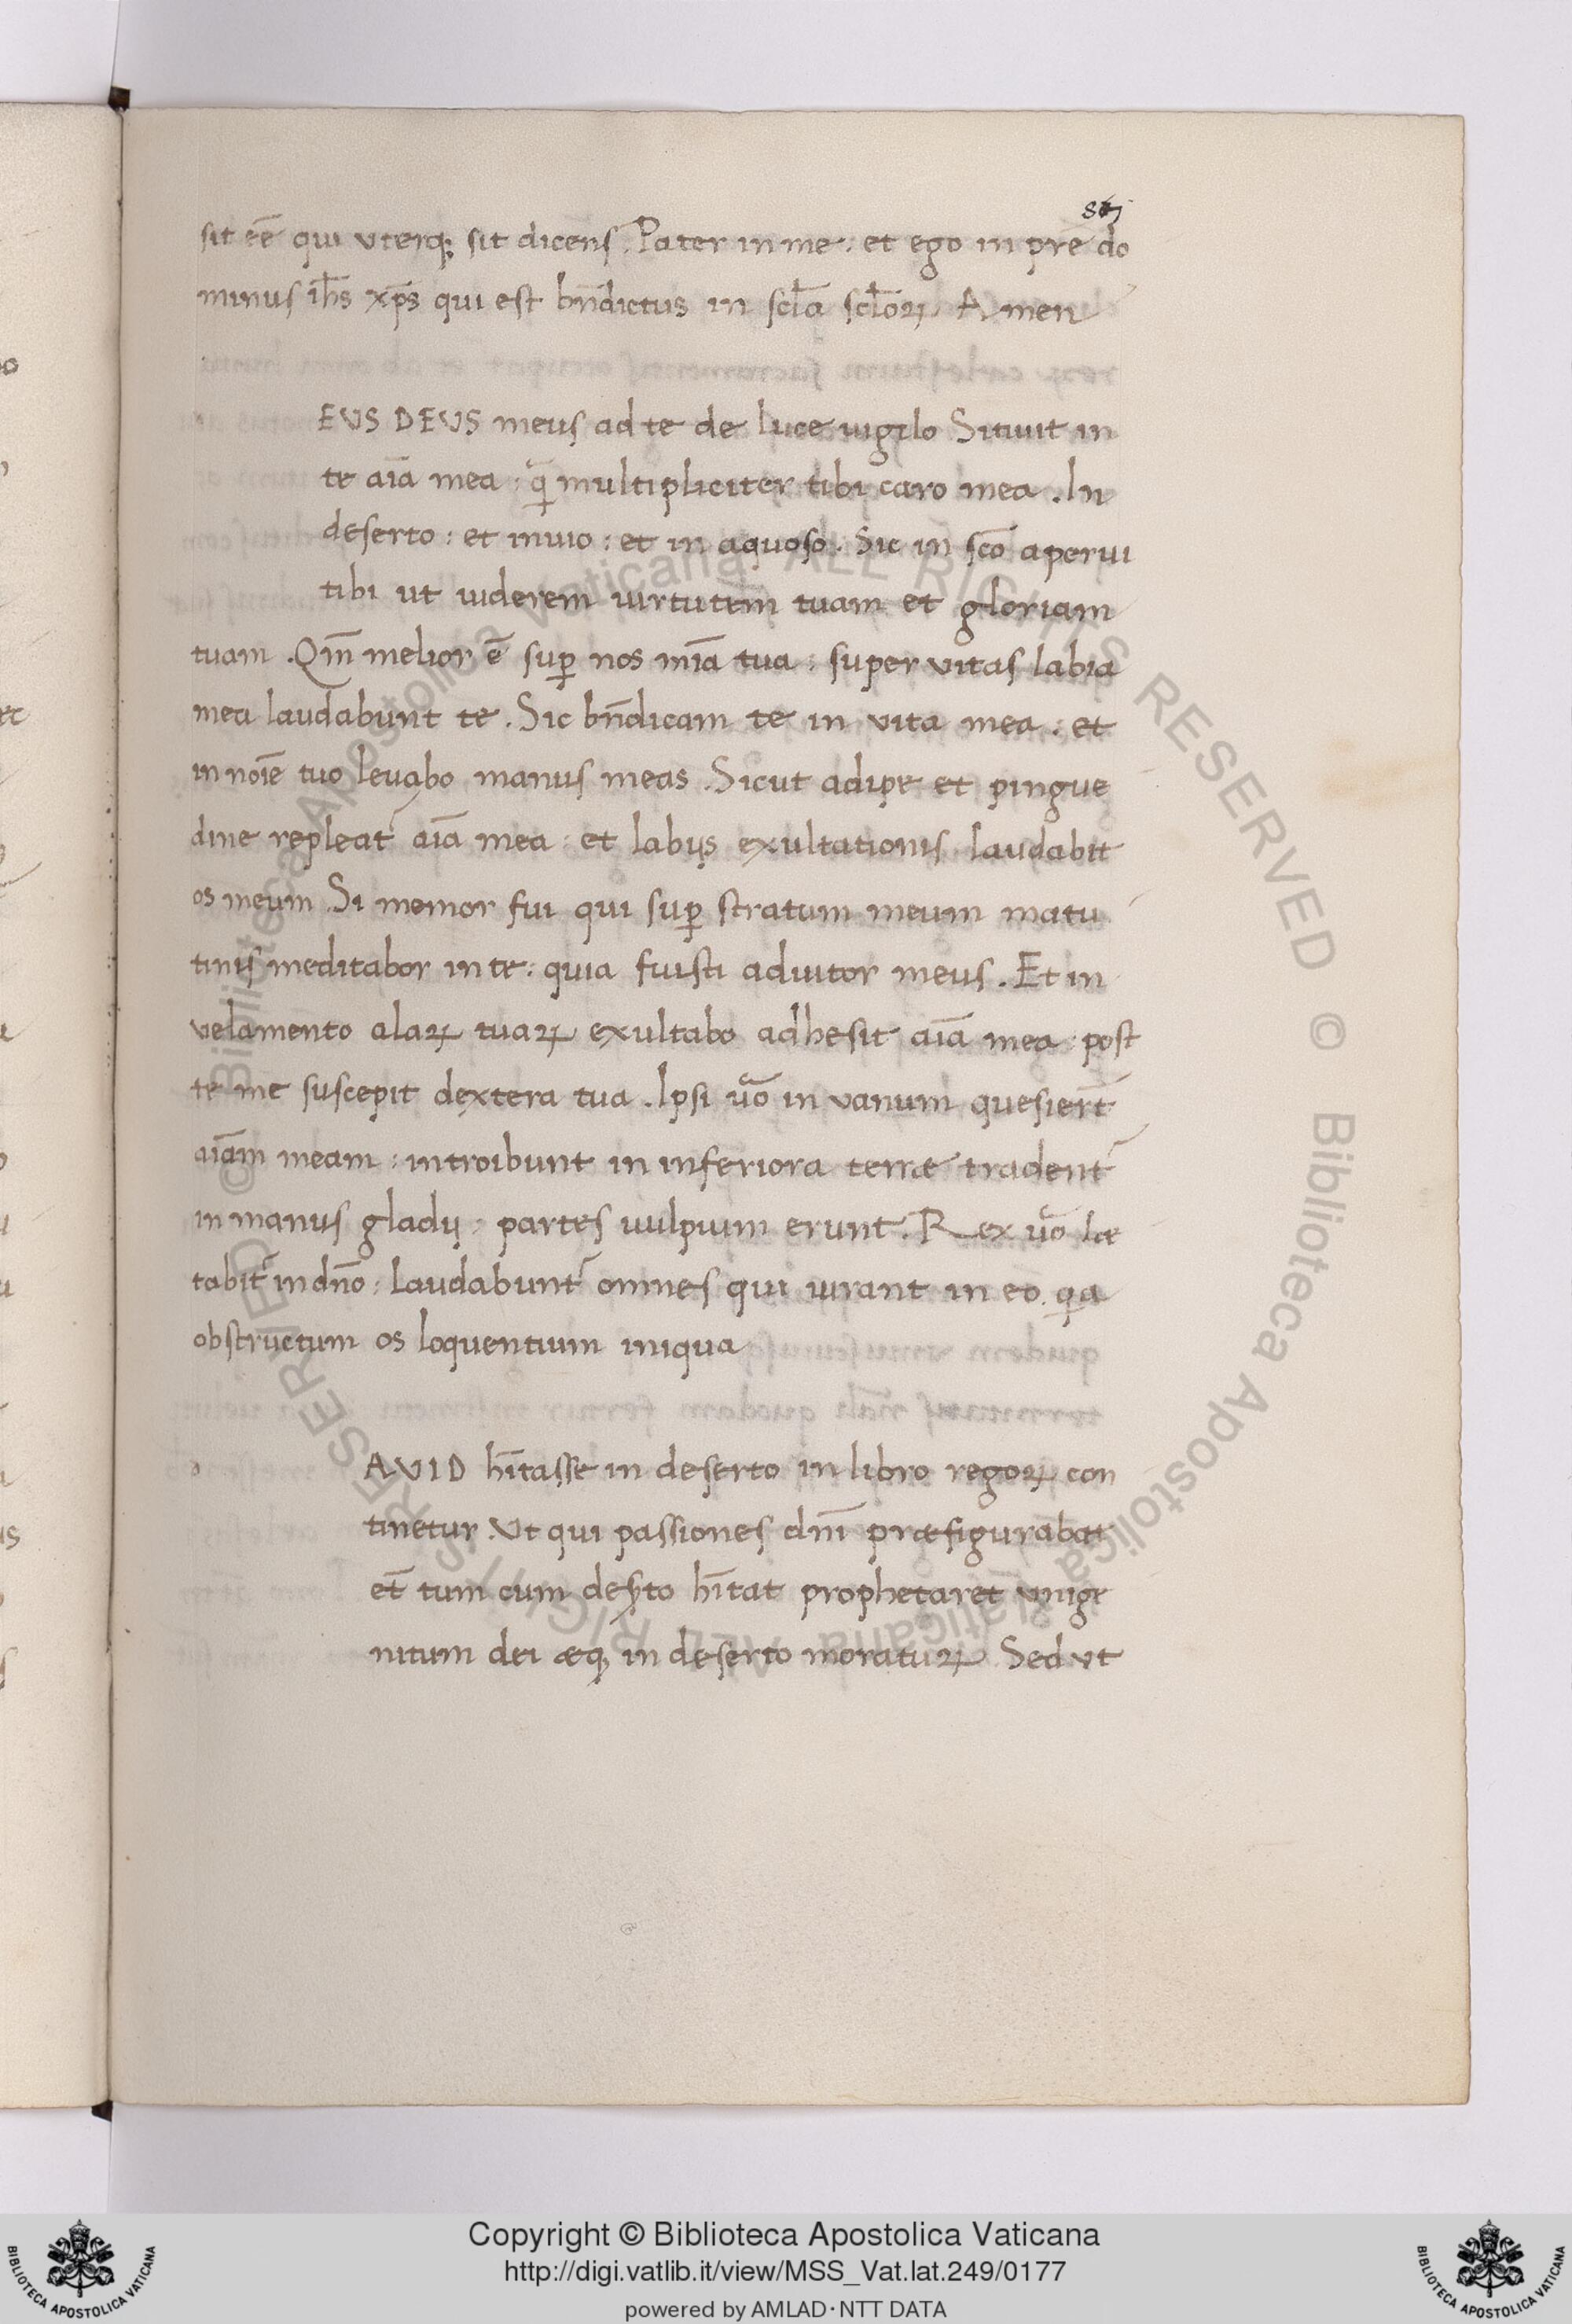 sit eē qui vterq; sit dicens. Pater in me: et ego in pr̄e do
minus ih̄s xp̄s qui est bn̄dictus in scl̄a scl̄oꝝ Amen
EVS DEVS meus ad te de luce uigilo Sitiuit in
te aīa mea: q̄ multipliciter tibi caro mea. In
deserto: et inuio: et in aquoso. Sic in sc̄o aparui
tibi ut uiderem uirtutem tuam et gloriam
tuam. Qm̄ melior ē suꝑ nos mīa tua: super vitas labia
mea laudabunt te. Sic bn̄dicam te in vita mea: et
in noīe tuo leuabo manus meas. Sicut adipe et pingue
dine repleat᷑ aīa mea: et labijs exultationis laudabit
os meum Si memor fui qui suꝑ stratum meum matu
tinis meditabor in te: quia fuisti adiutor meus. Et in
velamento alaꝝ tuaꝝ exultabo adhesit aīa mea: post
te me suscepit dextera tua. Ipsi uō in vanum quesiert̄
aīam meam: introibunt in inferiora terræ tradent᷑
in manus gladij: partes uulpium erunt. Rex uō læ
tabit᷑ in dn̄o: laudabunt᷑ omnes qui iurant in eo. qa
obstructum os loquentium iniqua
AVID hītasse in deserto in libro regoꝝ con
tinetur. Vt qui passiones dn̄i præfigurabat
et̄ tum cum des̄to hītat prophetaret vnige
nitum dei æq; in deserto moratuꝝ Sed vt
Copyright © Biblioteca Apostolica Vaticana
http://digi.vatlib.it/view/MSS_Vat.lat.249/0177
powered by AMLAD·NTT DATA
BIBLIOTECA APOSTOLICA VATICANA
BIBLIOTECA APOSTOLICA VATICANA
© Biblioteca Apostolica Vaticana ALL RIGHTS RESERVED
© Biblioteca Apostolica Vaticana ALL RIGHTS RESERVED